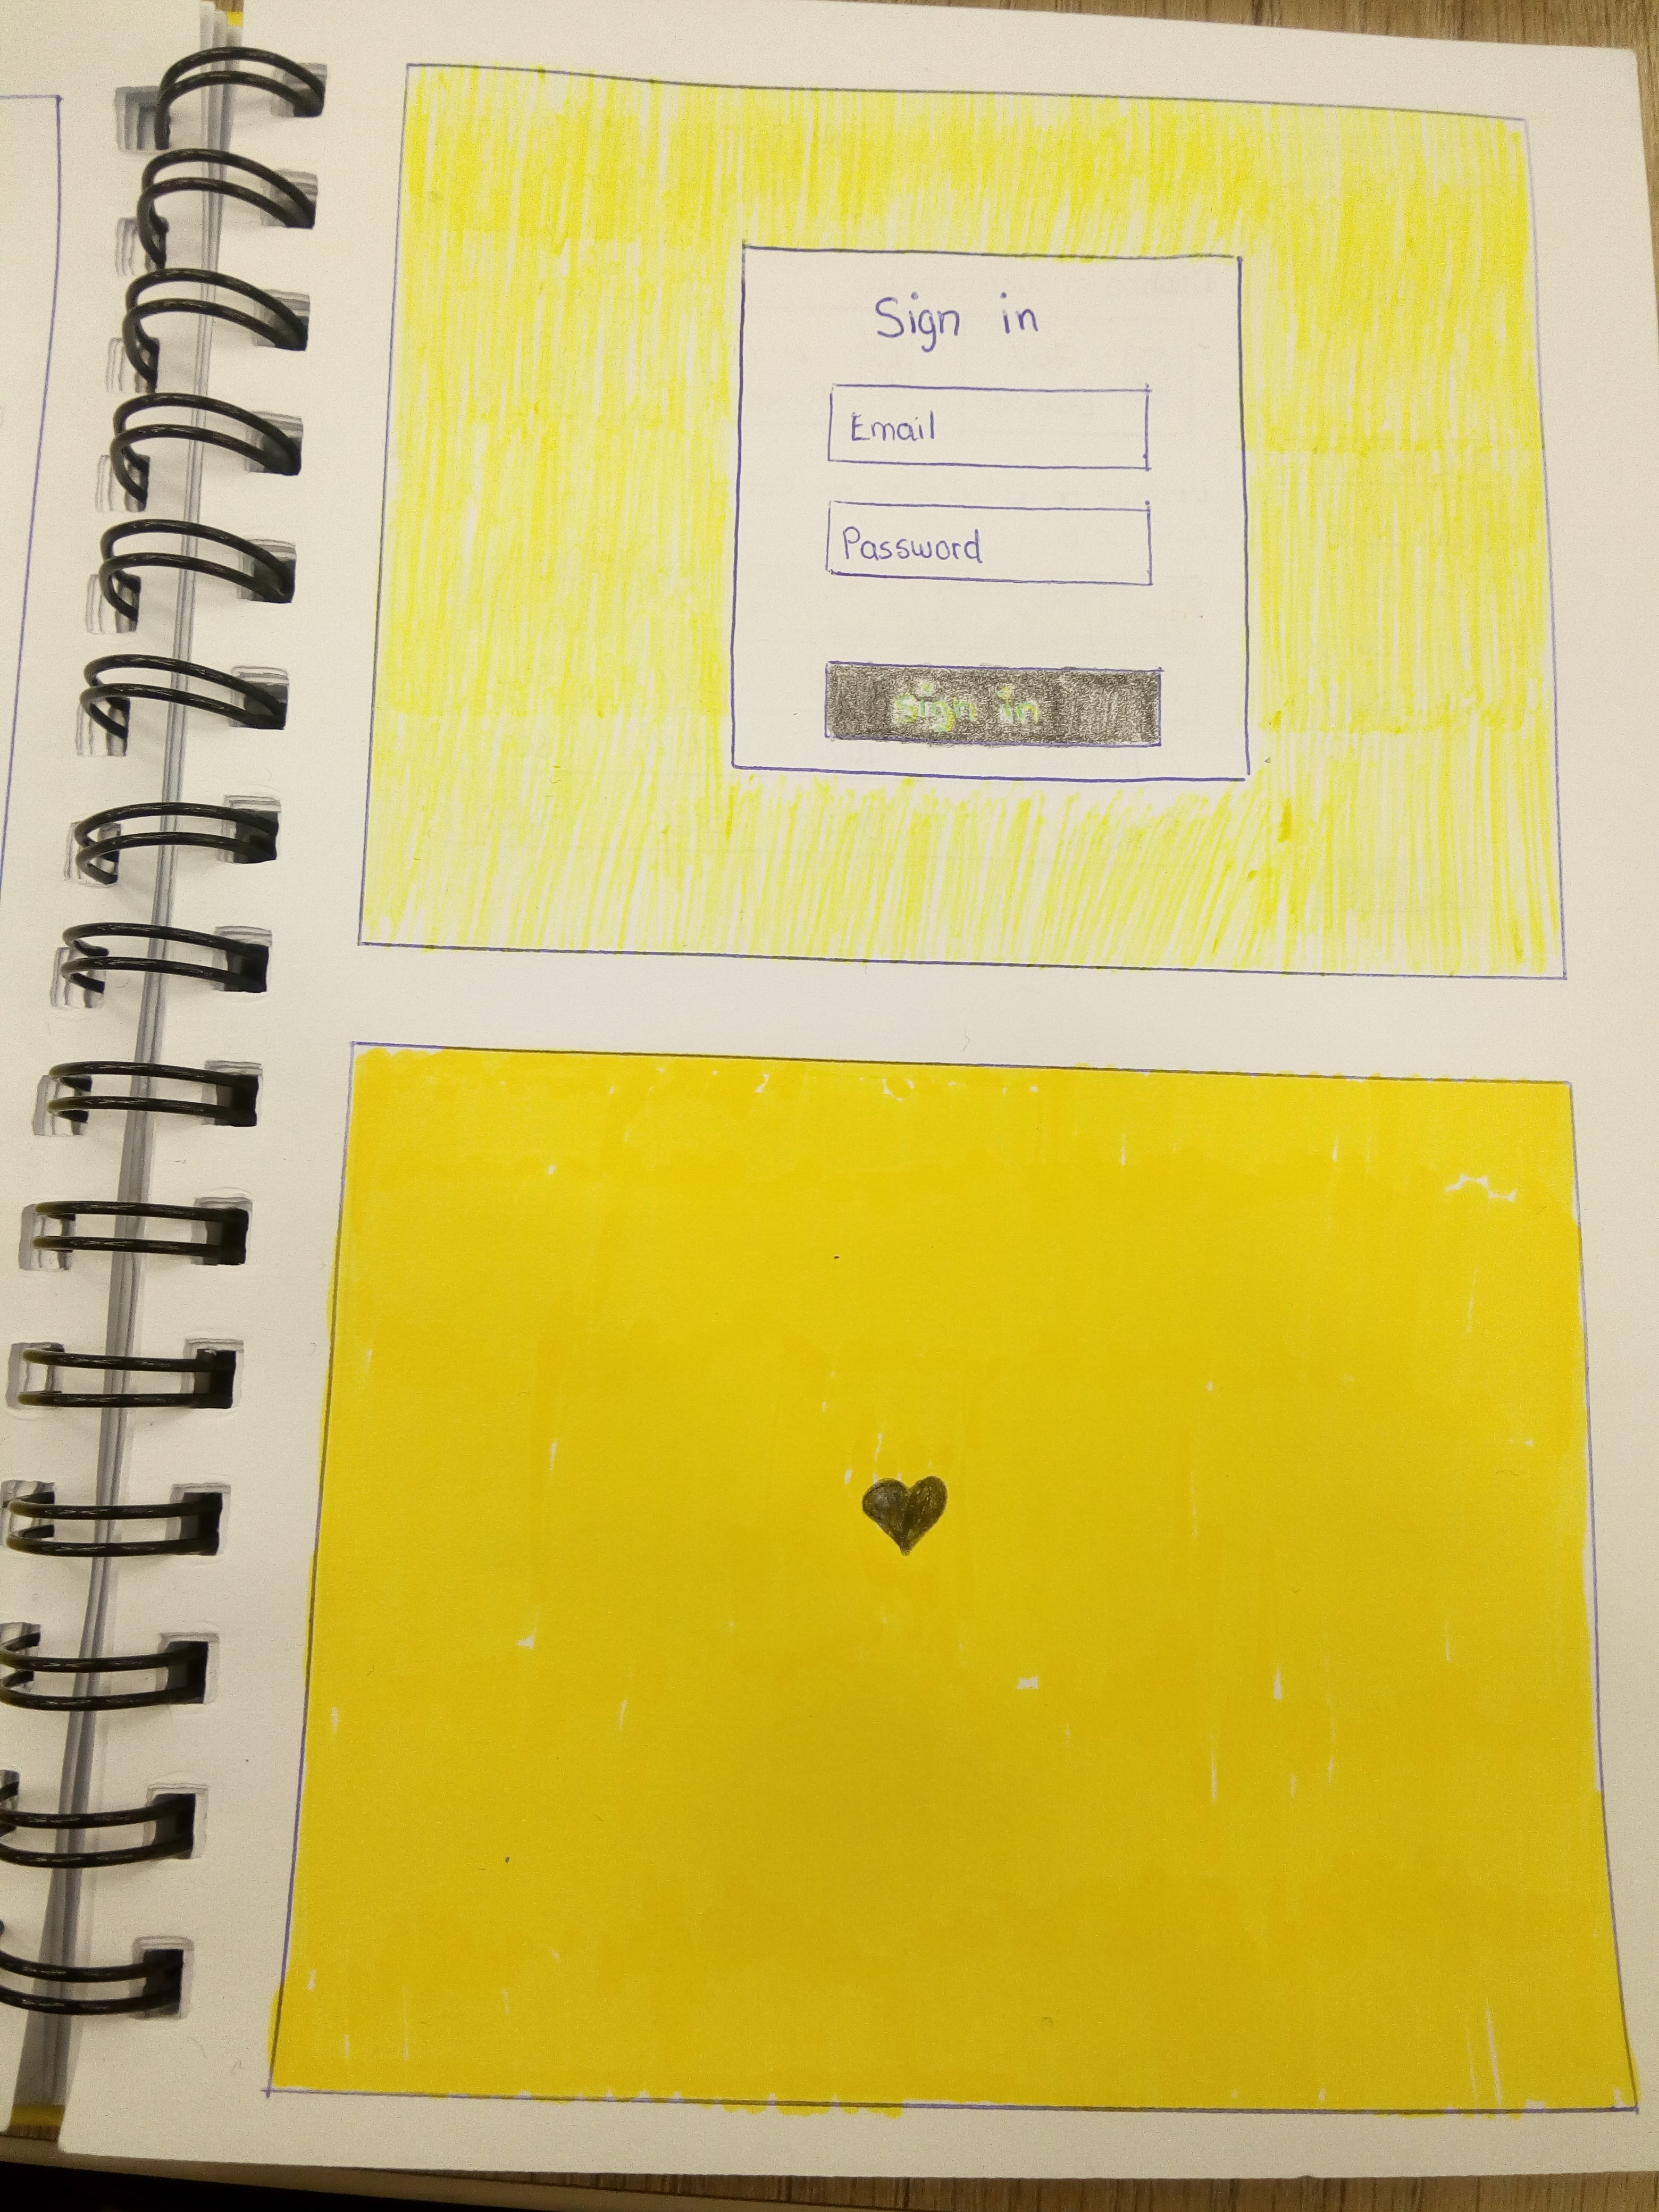 Sign in
Email
Password
Sign in